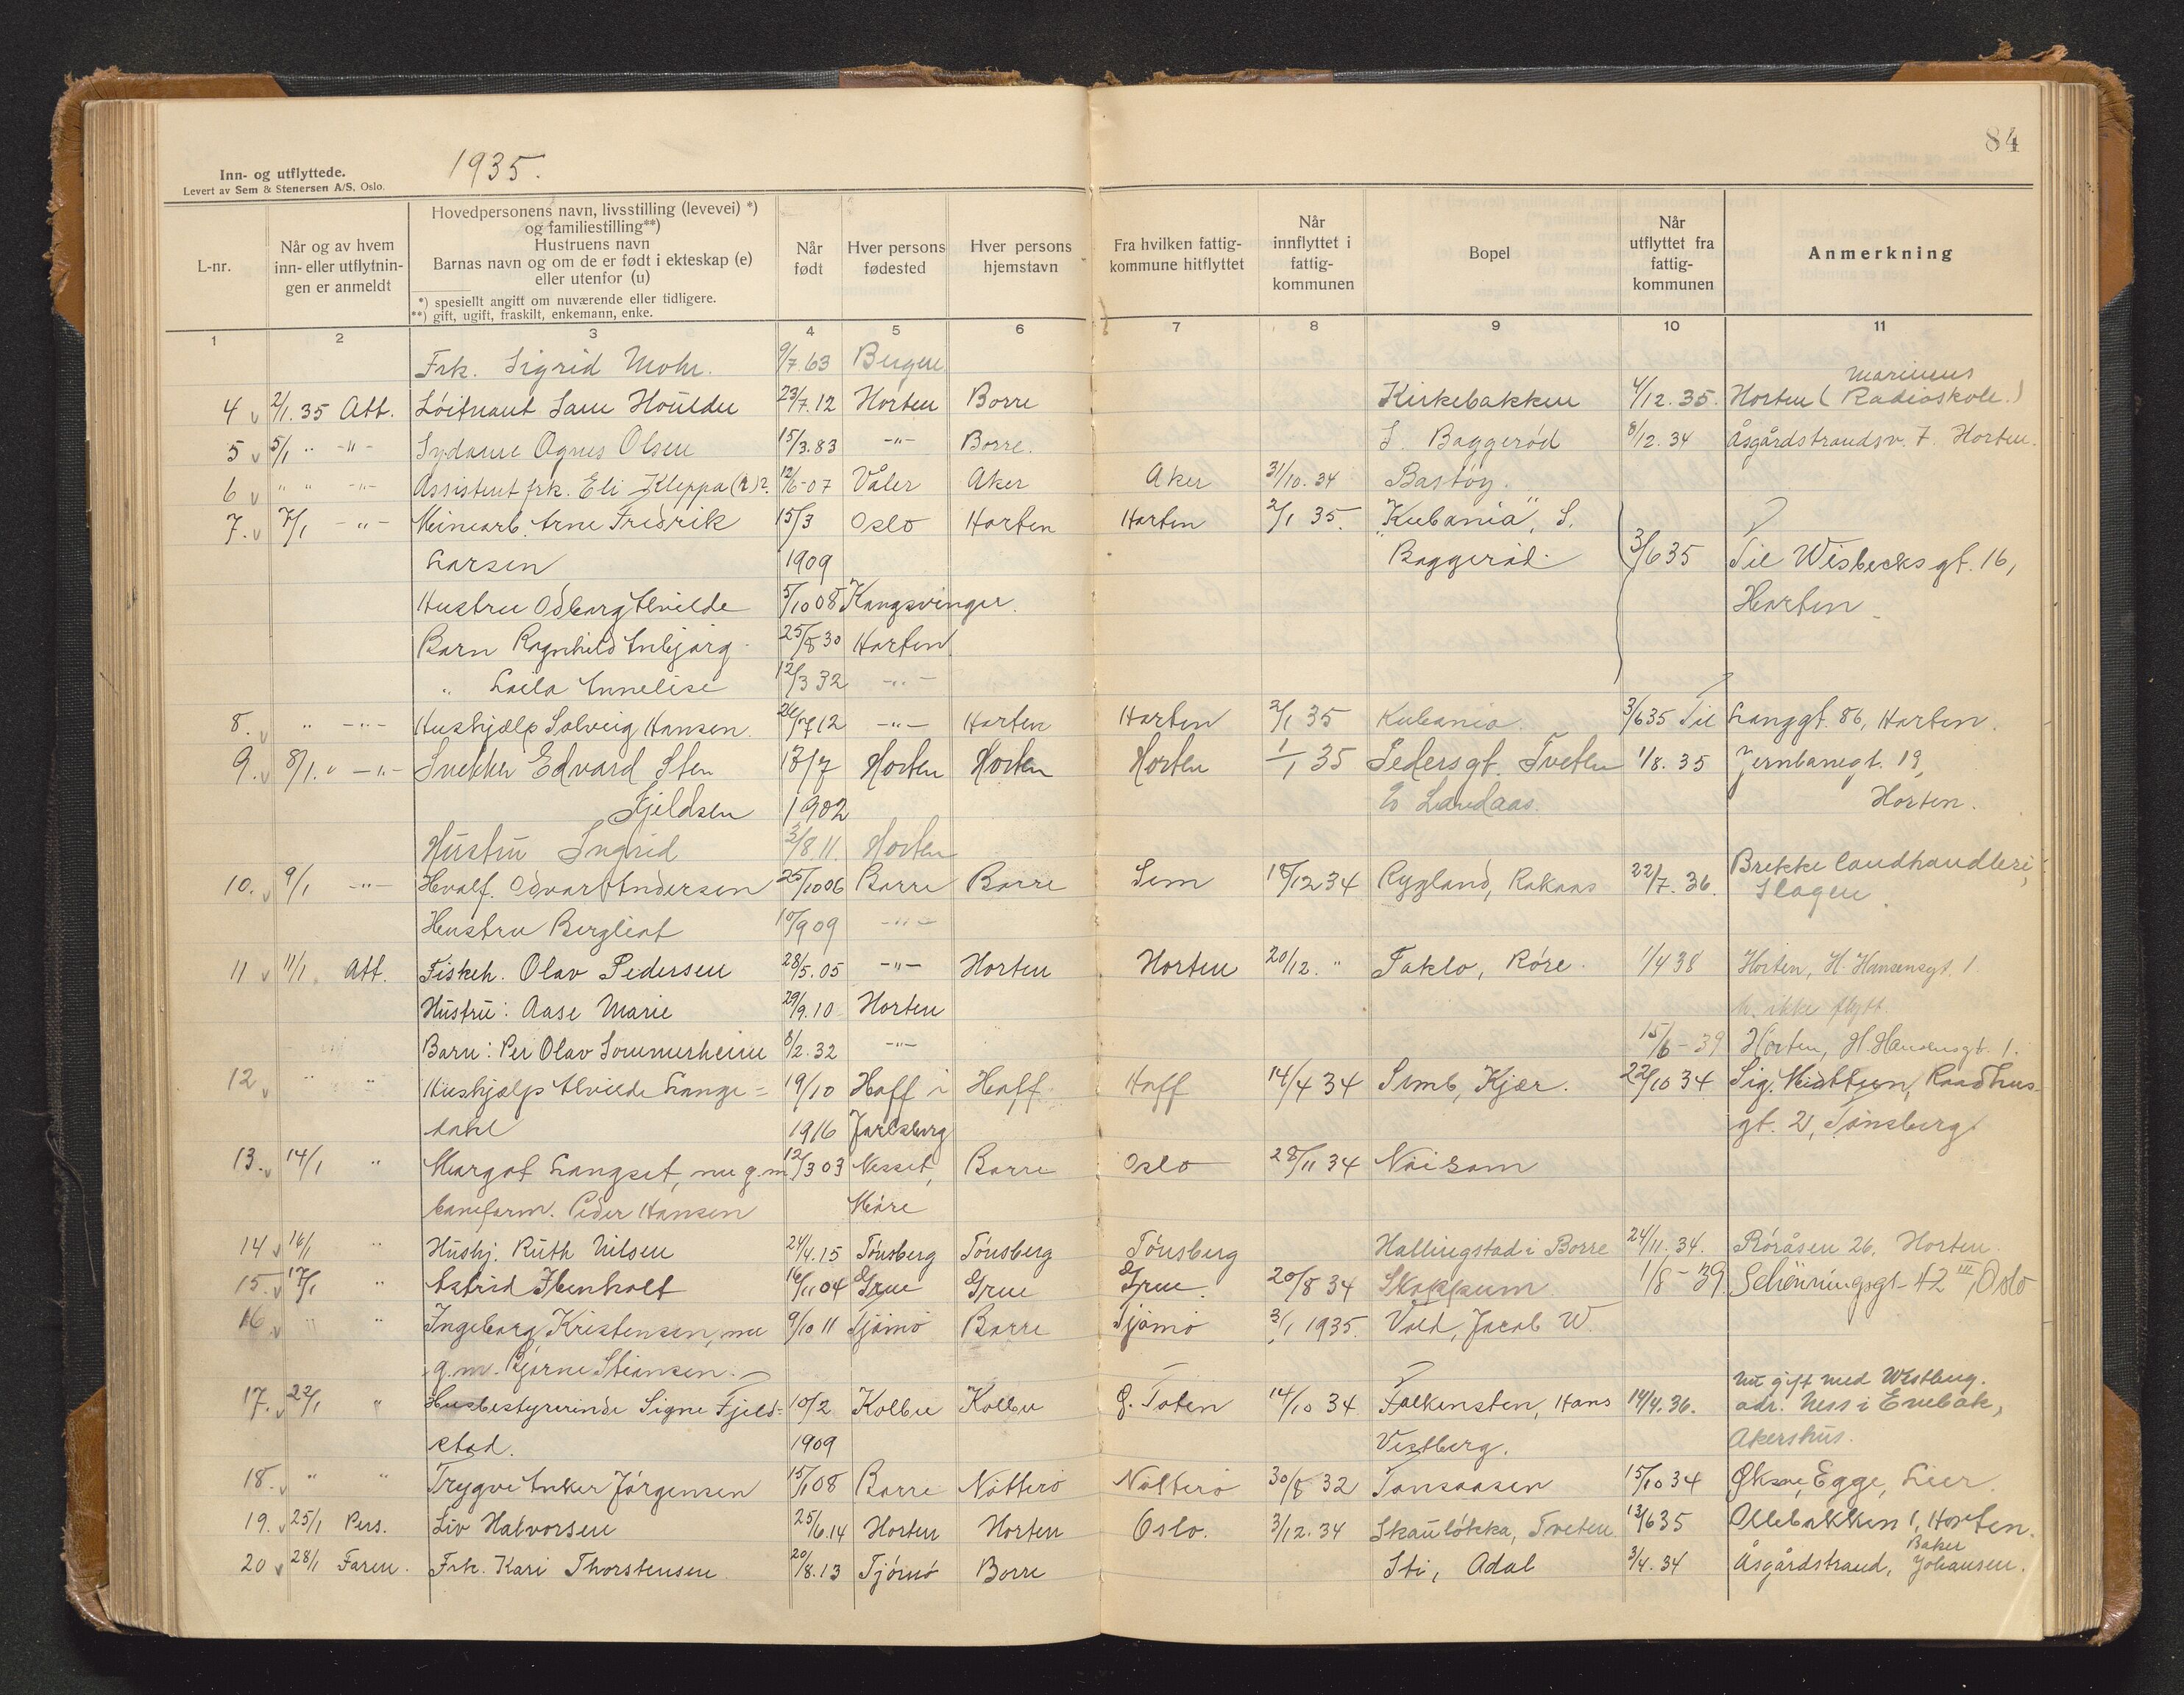 84
Inn- og utflyttede.
Levert av Sem & Stenersen A/S, Oslo.
1935.
L-nr.
Når og av hvem
inn- eller utflytnin-
gen er anmeldt
Hovedpersonens navn, livsstilling (levevei) *)
og familiestilling**)
Hustruens navn
Barnas navn og om de er født i ekteskap (e)
eller utenfor (u)
*) spesiellt angitt om nuværende eller tidligere.
**) gift, ugift, fraskilt, enkemann, enke.
Når
født
Hver persons
fødested
Hver persons
hjemstavn
Fra hvilken fattig-
kommune hitflyttet
Når
innflyttet i
fattig-
kommunen
Bopel
Når
utflyttet fra
fattig-
kommunen
Anmerkning
1 2 3 4 5 6 7 8 9 10 11
Frk. Sigrid Mohr. 9/7.63 Bergen
Marinens
4 v 2/1.35 Att. Løitnant Sam Houlder 23/7.12 Horten Borre Kirkebakken 4/12.35. Horten (Radioskole.)
5 v 5/1 " -"- Sydame Agnes Olsen 15/3.83 -"- Borre. S. Baggerød 8/12.34 Åsgårdstrandsv. 7. Horten.
6 v " " -"- Assistent frk. Eli Kleppa (r)?. 12/6-07 Våler Aker Aker 31/10.34 Bastøy.
7. v 7/1 -"- Minearb. Arne Fredrik 15/3 Oslo Horten Horten 2/1 35. "Kubania", S.
Larsen 1909 Baggerød. 3/6 35 Til Wisbecks gt. 16,
Hustru Odborg Alvilde 5/10 08 Kongsvinger. Horten
Barn Ragnhild Inbjørg 25/8 30 Horten
" Laila Annelise 12/3 32 -"-
8. v " -"- Hushjælp Solveig Hansen. 26/7 12 -"- Horten Horten 2/1 35 Kubania. 3/6 35 Til Langgt. 86, Horten.
9. v 8/1. " -"- Snekker Edvard Sten 13/7 Horten Horten Horten 1/1 35 Pedersgt. Tveten 1/8. 35 Jernbanegt. 19,
Kjeldsen 1902 Landaas. Horten.
Hustru Ingrid 3/8.11. Horten
10. v 9/1 -"- Hvalf. Odvar Andersen 25/10 06 Borre Borre Sem 18/12 34 Rygland, Rakaas 22/7. 36. Brekke landhandleri,
Slagen.
Hustru Bergliot 10/9 09 -"-
11 v 11/1. Att. Fiskeh. Olav Pedersen 28/5.05 -"- Horten Horten 20/12. " Faklo, Røre. 1/4 38 Horten, H. Hansensgt. 1.
Hustru: Aase Marie 29/9.10 Horten ikke flytt
Barn: Per Olav Sommerheim 8/2.32 -"- 15/6-39 Horten, H. Hansensgt. 1.
12 v " " Hushjælp Alvilde Lange= 19/10 Hoff i Hoff Hoff 14/4 34 Semb, Kjær. 22/10 34 Sig. Midttun, Raadhus-
dahl 1916 Jarlsberg gt. 2, Tønsberg
13. v 14/1 " Margot Langset, nu g.m. 12/3 03 Nesset, Borre Oslo 28/11 34 Noisom
baneform. Peder Hansen Møre
14 v 16/1 " Hushj. Ruth Nilsen 24/4.15 Tønsberg Tønsberg Tønsberg Hallingstad i Borre 24/11.34. Røråsen 26. Horten.
15. v 17/1 " Astrid Ibenholt 16/11 04 Grue Grue Grue. 20/8 34 Skoppum 1/8-39. Schønningsgt 42 III, Oslo
16. v " " Ingeborg Kristensen, nu 9/10 11 Tjømø Borre Tjømø 3/1 1935. Vold, Jacob W.
g.m. Bjarne Stiansen.
Nu gift med Westberg.
17. v 22/1 " Husbestyrerinde Signe Fjeld= 10/2 Kolbu Kolbu Ø. Toten 14/10 34 Falkensten, Hans 14/4.36. adr. Ness i Enebak,
stad. 1909 Vestberg. Akershus.
18. v " " Trygve Anker Jørgensen 15/1 08 Borre Nøtterø Nøtterø 30/8 32 Tonsaasen 15/10 34 Øksne, Egge, Lier.
19. v 25/1 Pers. Liv Halvorsen 25/6.14 Horten Horten Oslo. 3/12.34 Skauløkka, Tveten 13/6 35 Ollebakken 1, Horten.
Baker
20 v 28/1 Faren. Frk. Kari Thorstensen 20/8.13 Tjømø Borre Sti, Adal 3/4.34 Åsgårdstrand, Johansen.